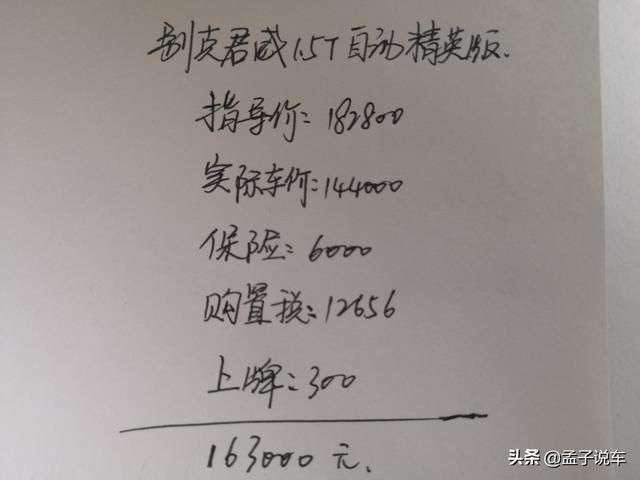 别克君威1.5T自动精英版.
指导价:182800
实际车价:144000
保险:6000
购置税:12656
上牌:300
163000元.
头条 @孟子说车